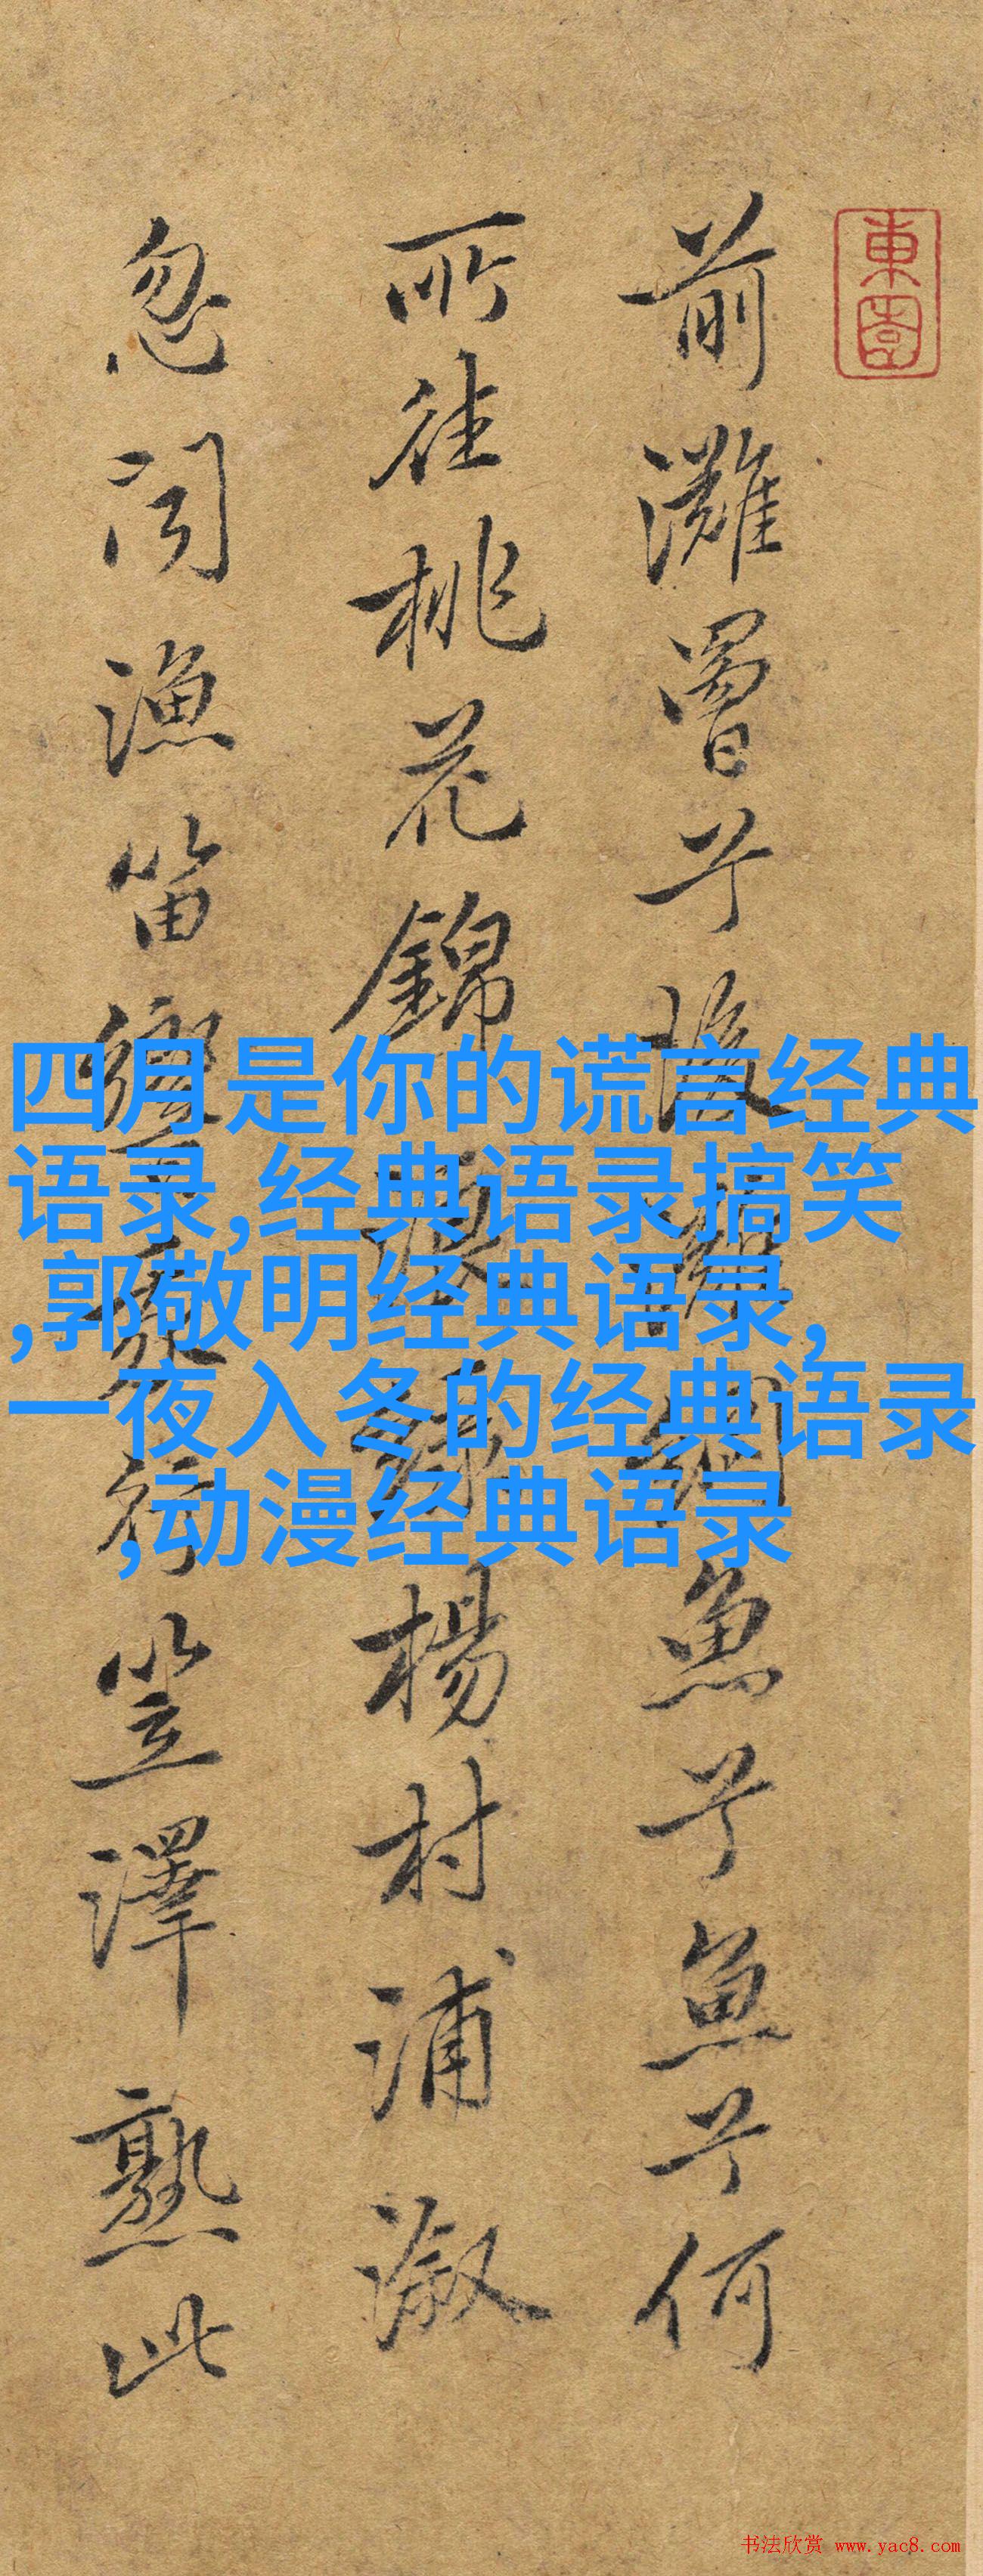 東園
前灘罾兮後灘網魚兮魚兮何
所往桃花錦浪綠楊村浦溆
忽聞漁笛響豪行笠澤熟此
四月是你的谎言经典
语录,经典语录搞笑
,郭敬明经典语录,
一夜入冬的经典语录
,动漫经典语录
书法欣赏 www.yac8.com